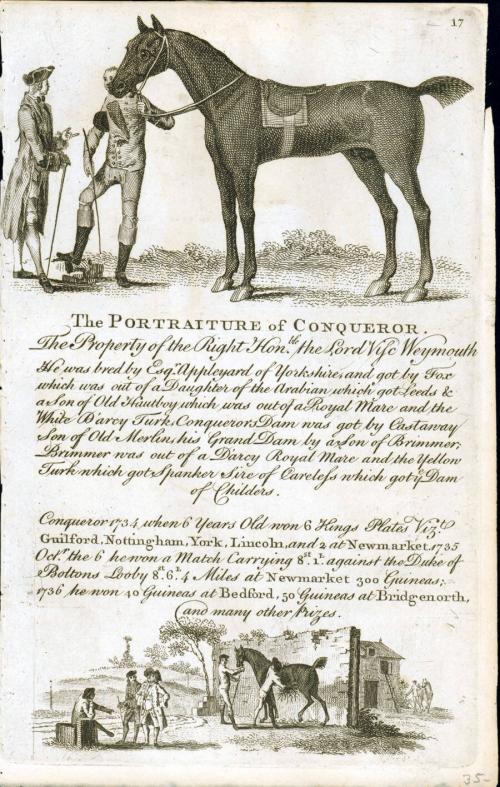 17
The PORTRAITURE of CONQUEROR.
The Property of the Right Hon.ble the Lord Visc Weymouth
He was bred by Esqr. Appleyard of Yorkshire, and got by Fox
which was out of a Daughter of the Arabian which got Leeds &
a Son of Old Hautboy which was out of a Royal Mare and the
White D'arcy Turk, Conquerors Dam was got by Castaway
Son of Old Merlin, his Grand Dam by a Son of Brimmer,
Brimmer was out of a Darcy Royal Mare and the Yellow
Turk which got Spanker Sire of Careless which got ye. Dam
of Childers.
Conqueror 1734, when 6 Years Old won 6 Kings Plates Vizt.
Guilford, Nottingham, York, Lincoln, and 2 at Newmarket, 1735
Octr. the 6 he won a Match Carrying 8st. 1L. against the Duke of
Boltons Looby 8st. 6L. 4 Miles at Newmarket 300 Guineas;
1736 he won 40 Guineas at Bedford, 50 Guineas at Bridgenorth,
and many other Prizes.
35-